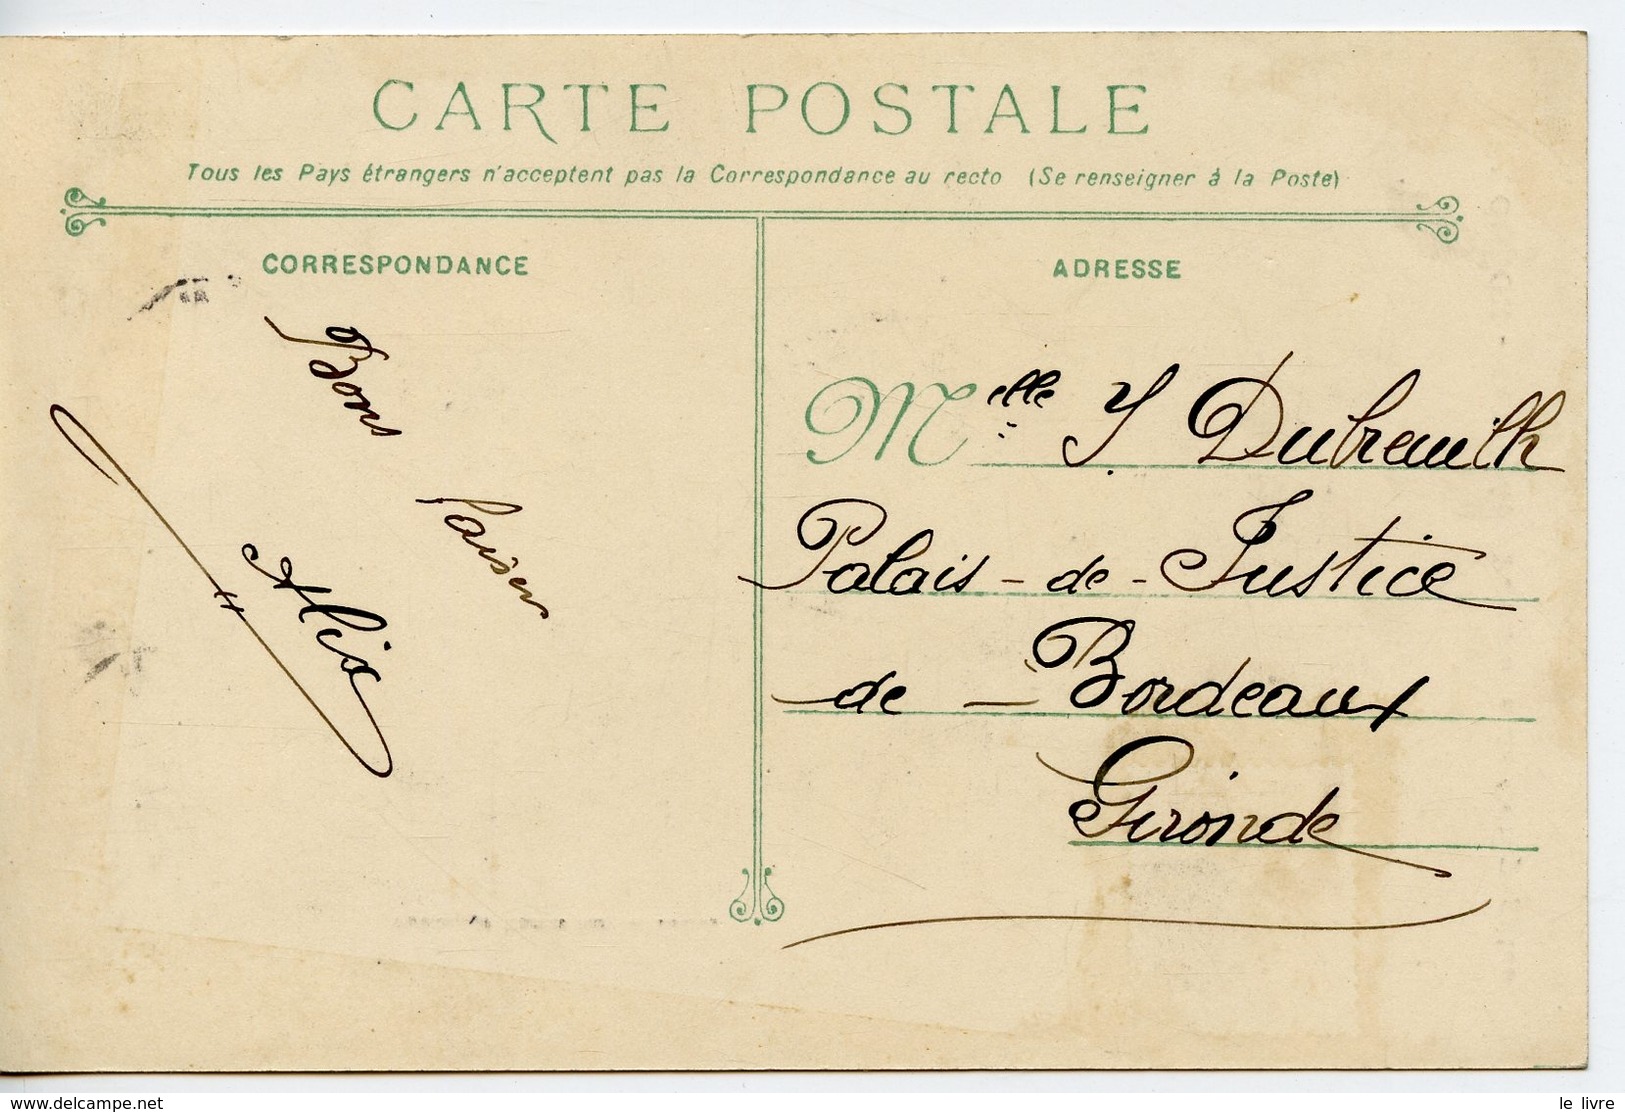 CARTE POSTALE
Tous les Pays étrangers n'acceptent pas la Correspondance au recto (Se renseigner à la Poste)
CORRESPONDANCE
Bons
baisers
Alix
ADRESSE
Melle Y Dubreuilh
Palais-de-Justice
de - Bordeaux
Gironde
www.delcampe.net
le livre